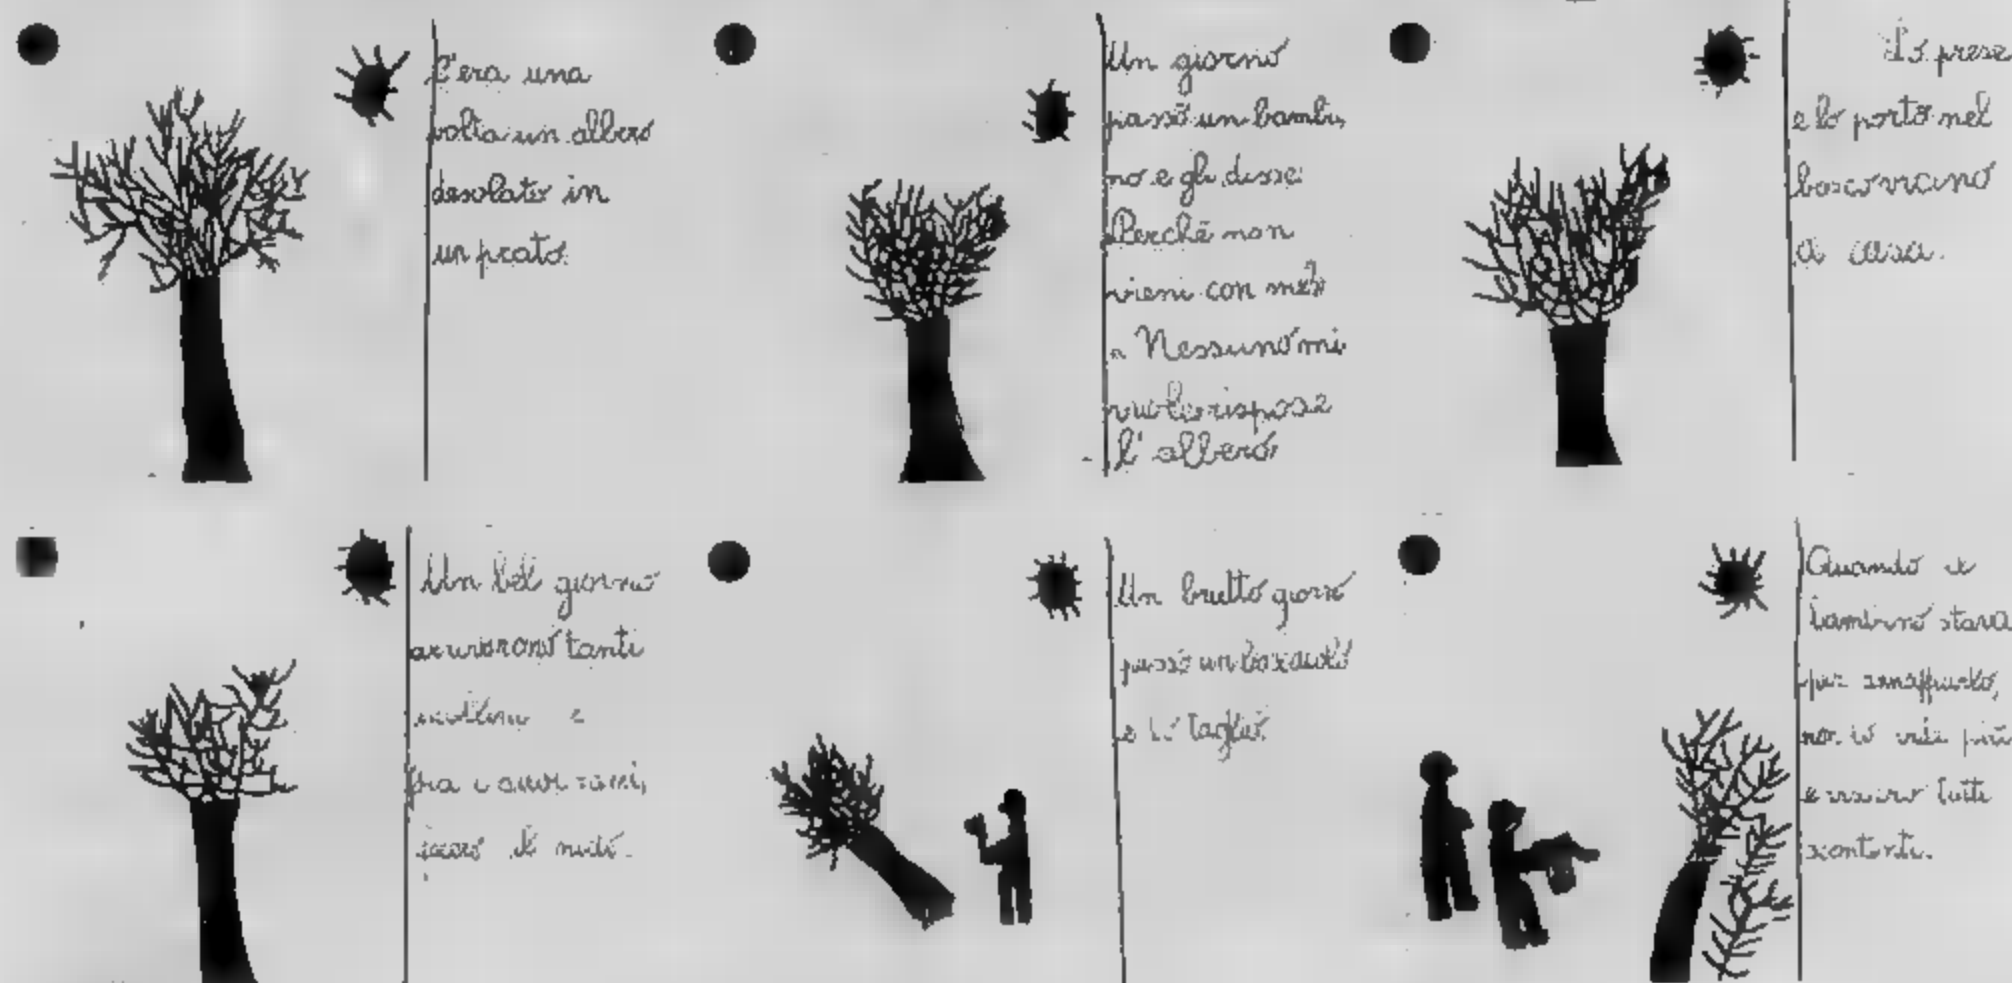 C'era una
volta un albero
desolato in
un prato.
Un giorno
passò un bambi
no e gli disse:
Perché non
vieni con me?
" Nessuno mi
vuole rispose
l'albero
Lo prese
e lo portò nel
bosco vicino
a casa.
Un bel giorno
arrivarono tanti
uccellini e
fra i suoi rami,
il nido.
Un brutto giorno
passò un boscaiolo
e lo tagliò.
Quando il
bambino stava
per annaffiarlo,
non lo vide più
e tutti
scontenti.